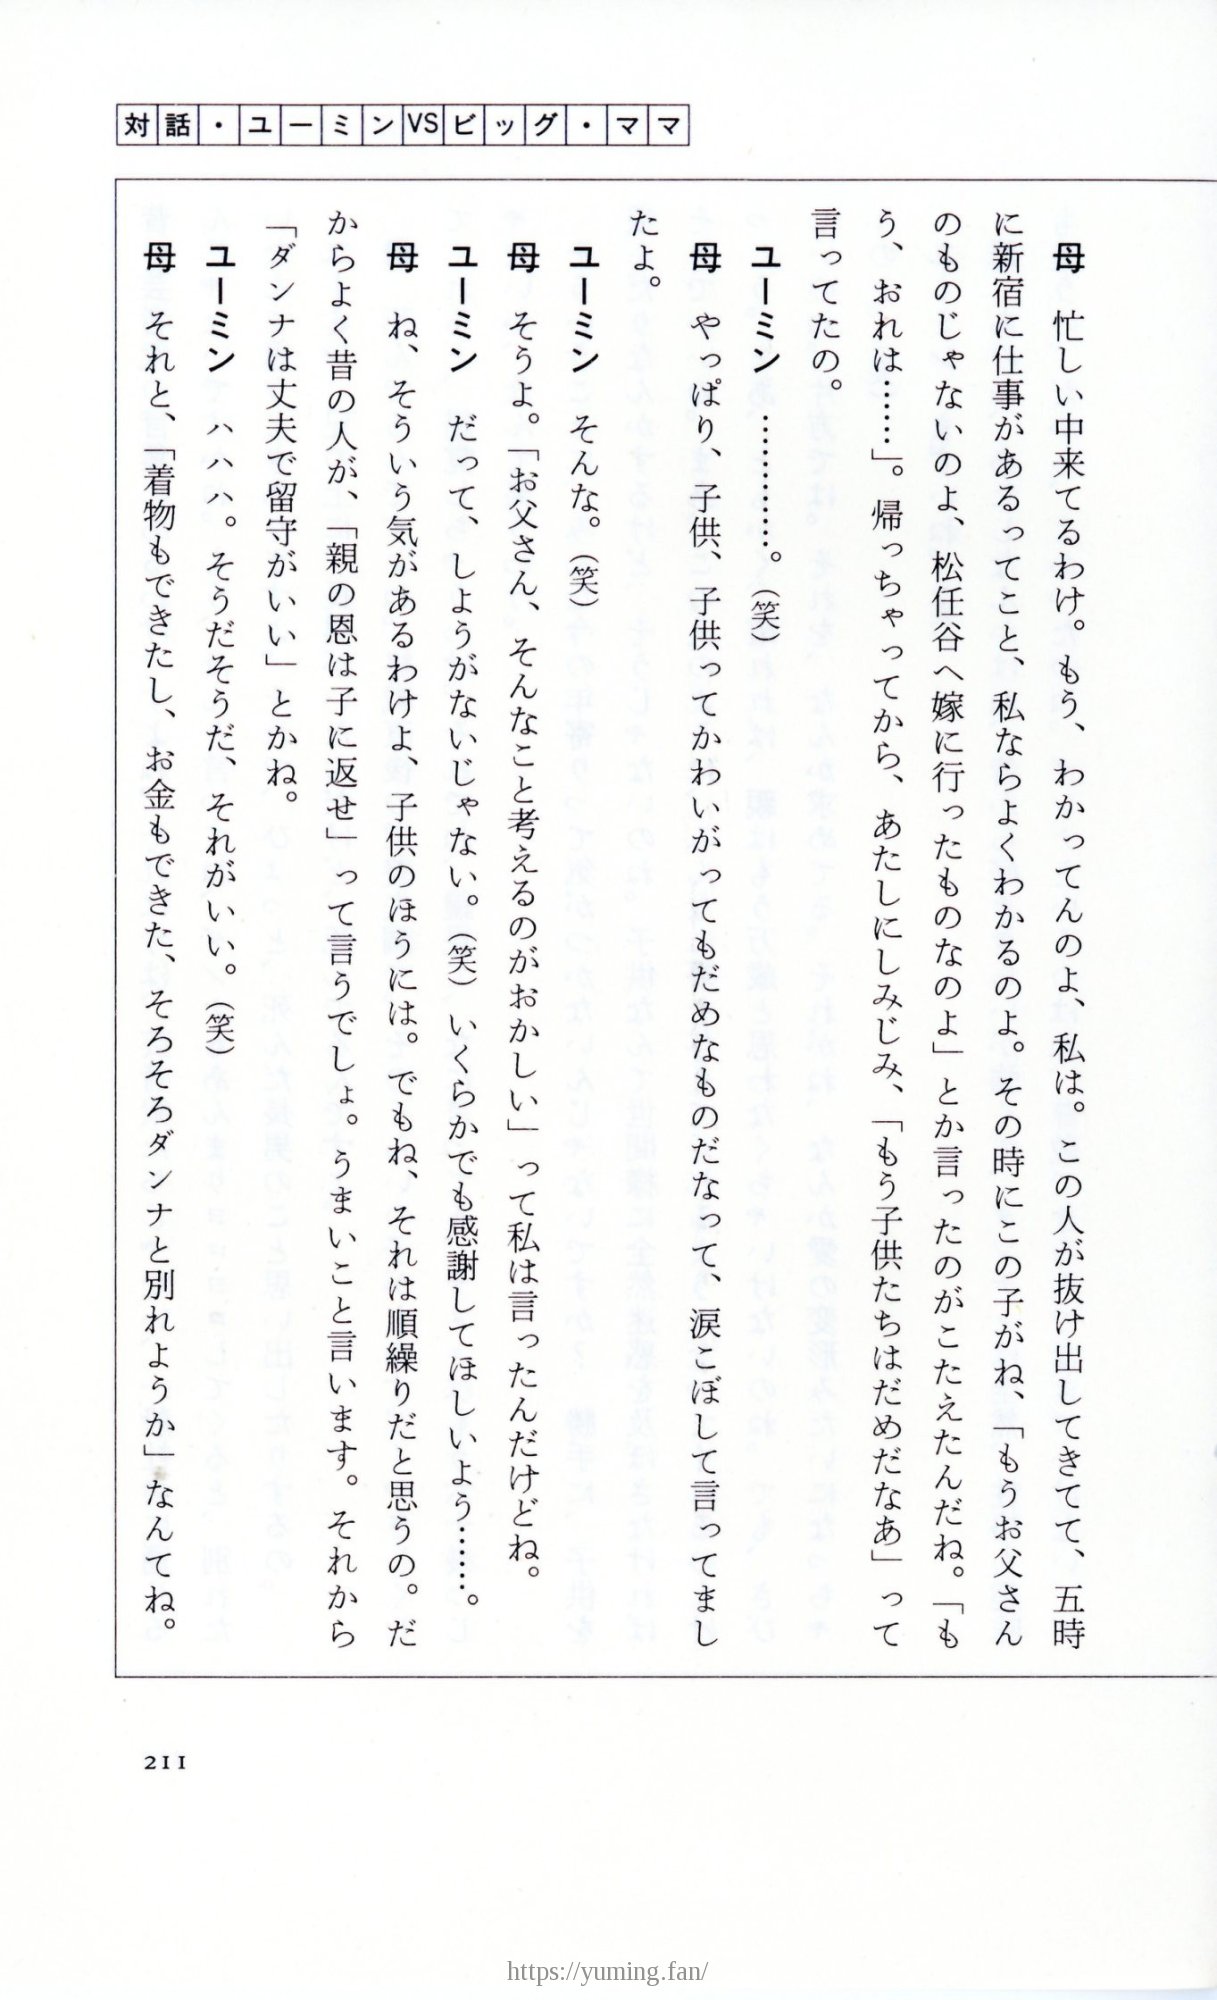 対話・ユーミンVSビッグ・ママ
母　忙しい中来てるわけ。もう、わかってんのよ、私は。この人が抜け出してきてて、五時
に新宿に仕事があるってこと、私ならよくわかるのよ。その時にこの子がね、「もうお父さん
のものじゃないのよ、松任谷へ嫁に行ったものなのよ」とか言ったのがこたえたんだね。「も
う、おれは……」。帰っちゃってから、あたしにしみじみ、「もう子供たちはだめだなあ」って
言ってたの。
ユーミン　…………。（笑）
母　やっぱり、子供、子供ってかわいがってもだめなものだなって、涙こぼして言ってまし
たよ。
ユーミン　そんな。（笑）
母　そうよ。「お父さん、そんなこと考えるのがおかしい」って私は言ったんだけどね。
ユーミン　だって、しようがないじゃない。（笑）いくらかでも感謝してほしいよう……。
母　ね、そういう気があるわけよ、子供のほうには。でもね、それは順繰りだと思うの。だ
からよく昔の人が、「親の恩は子に返せ」って言うでしょ。うまいこと言います。それから
「ダンナは丈夫で留守がいい」とかね。
ユーミン　ハハハ。そうだそうだ、それがいい。（笑）
母　それと、「着物もできたし、お金もできた、そろそろダンナと別れようか」なんてね。
211
https://yuming.fan/